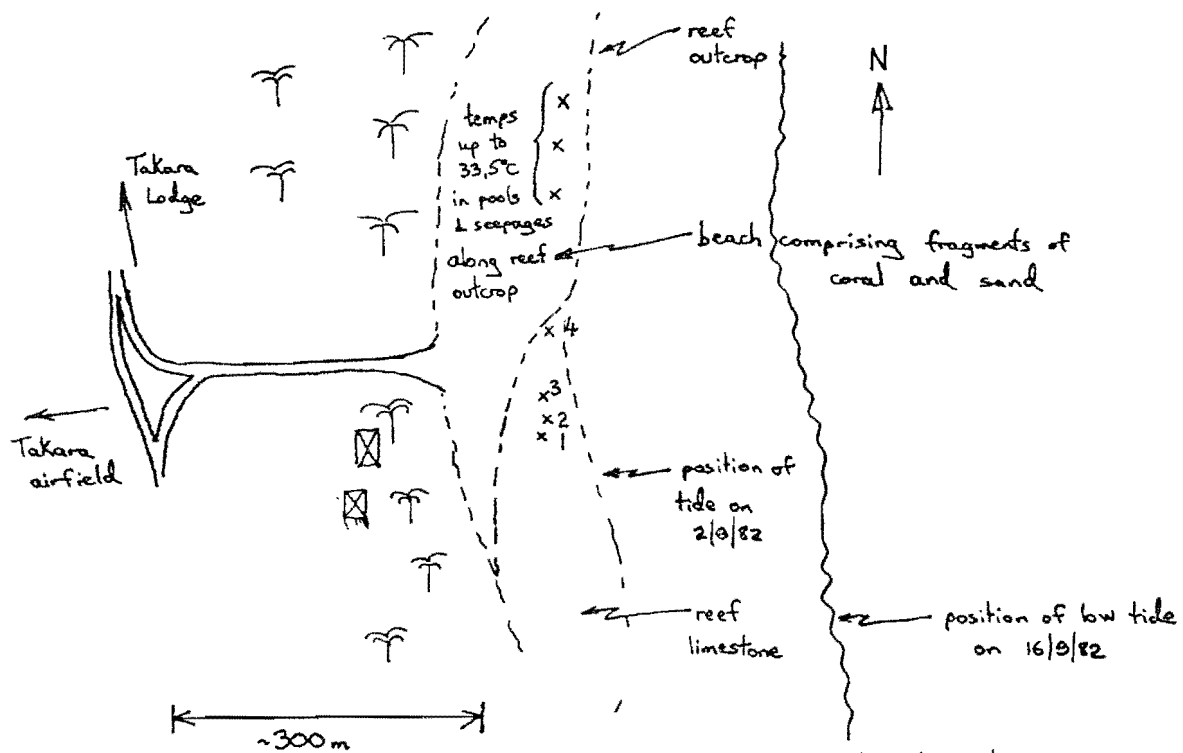 reef
outcrop
N
temps
up to
33,5°C
in pools
& seepages
along reef
outcrop
x
x
x
Takara
Lodge
beach comprising fragments of
coral and sand
x 4
x 3
x 2
x 1
Takara
airfield
position of
tide on
2/9/82
reef
limestone
position of low tide
on 16/9/82
~300m